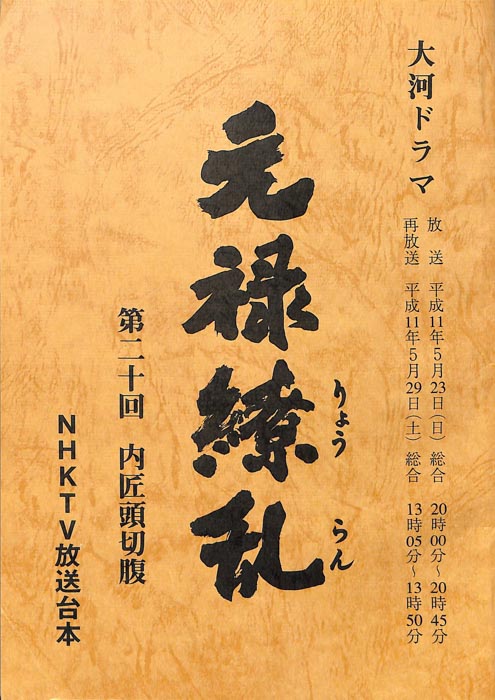 大河ドラマ
放送 平成11年5月23日(日) 総合 20時00分~20時45分
再放送 平成11年5月29日(土) 総合 13時05分~13時50分
元禄繚乱
りょう らん
第二十回 内匠頭切腹
NHKTV放送台本